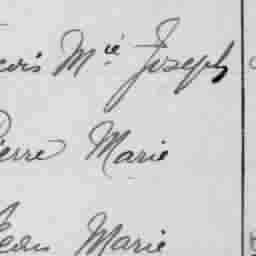 ncois M.ie Joseph
Pierre Marie
Jean Marie